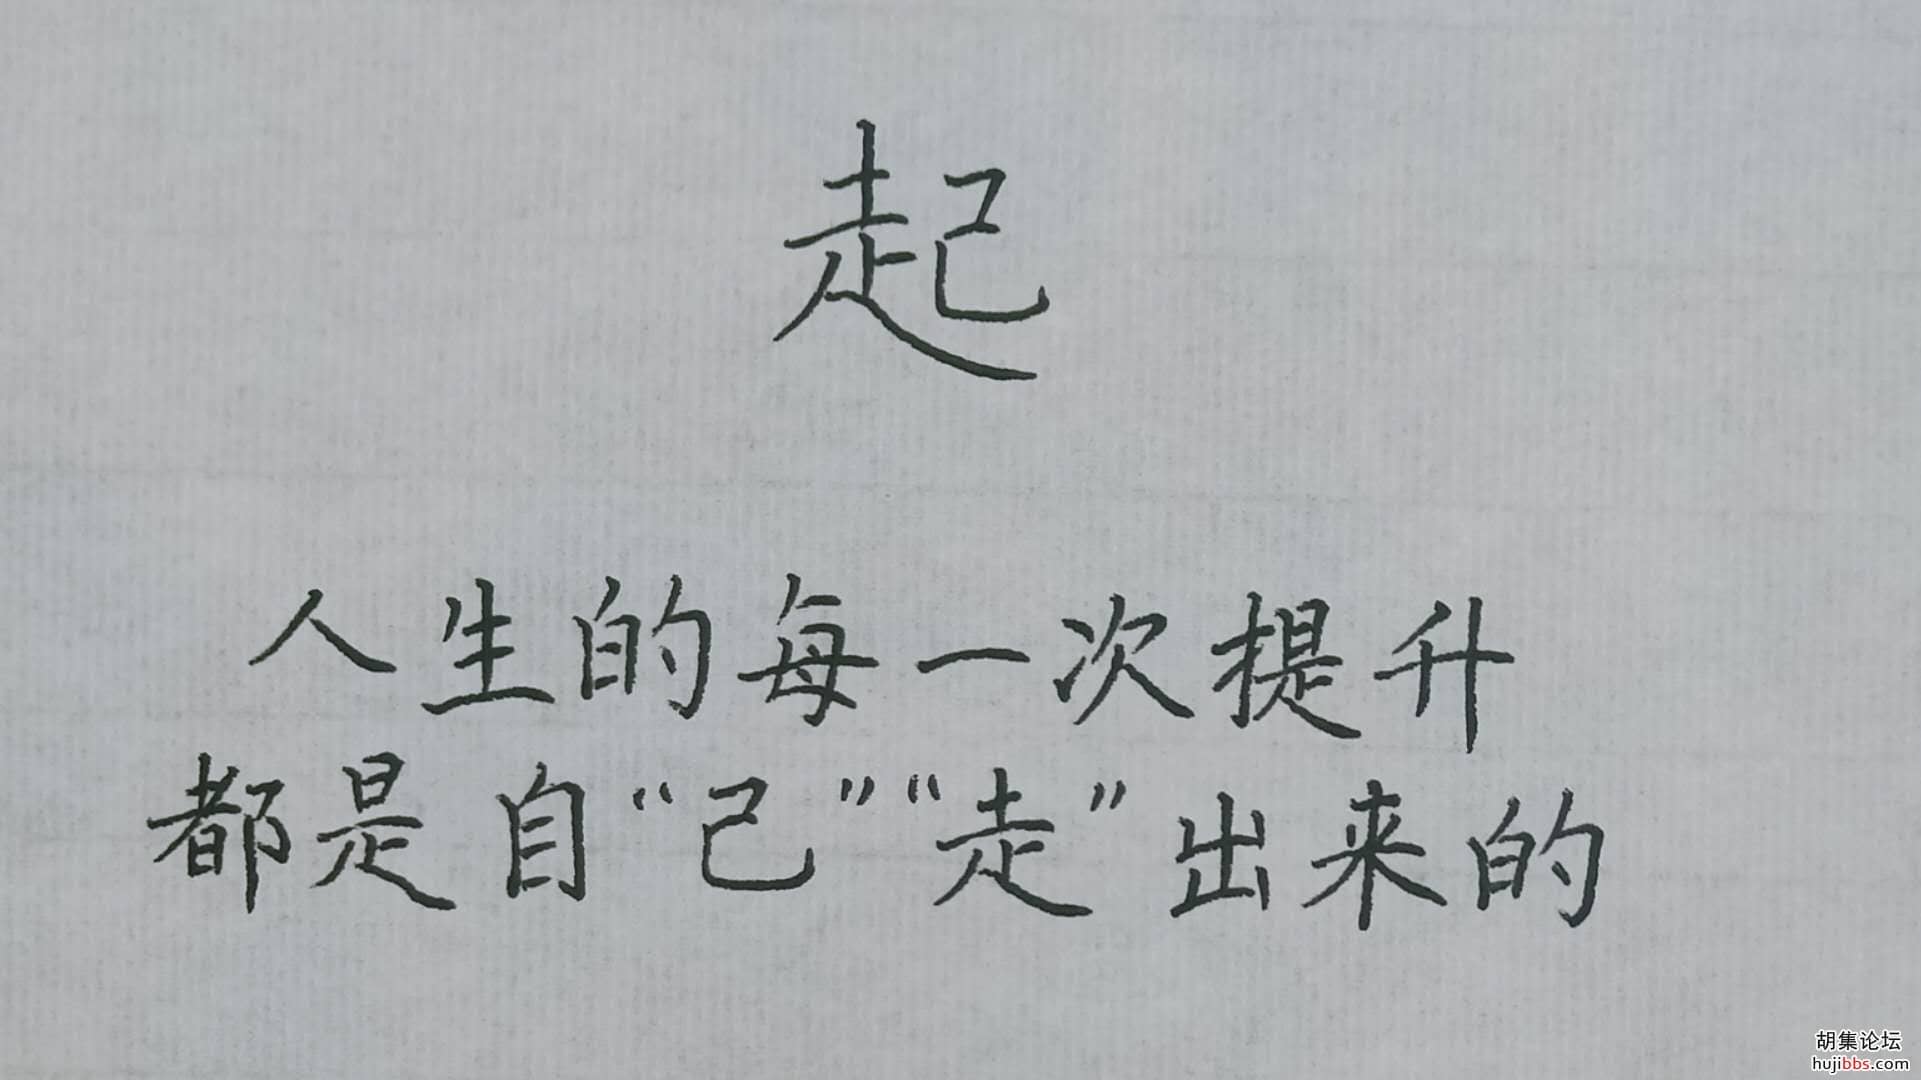 起
人生的每一次提升
都是自“己”“走”出来的
胡集论坛
hujibbs.com